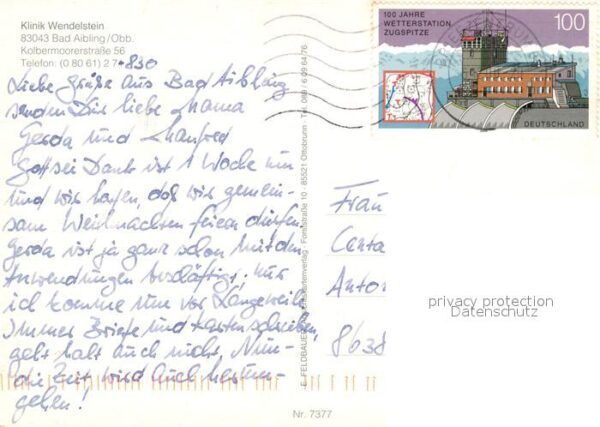 Klinik Wendelstein
83043 Bad Aibling/Obb.
Kolbermoorerstraße 56
Telefon: (0 80 61) 2 7-830
Liebe Grüße aus Bad Aibling
senden Dir liebe Mama
Gerda und Manfred
Gott sei Dank ist 1 Woche um
und wir hoffen, daß wir gemein-
sam Weihnachten feiern dürfen.
Gerda ist ja ganz schön mit den
Anwendungen beschäftigt, nur
ich komme um vor Langeweile.
Immer Briefe und Karten schreiben,
geht halt auch nicht, Nun-
die Zeit wird auch herum-
gehen!
Nr. 7377
85521 Ottobrunn · Tel. 089 / 6 09 64 76
100 JAHRE
WETTERSTATION
ZUGSPITZE
100
DEUTSCHLAND
Frau
Anton
8638
privacy protection
Datenschutz